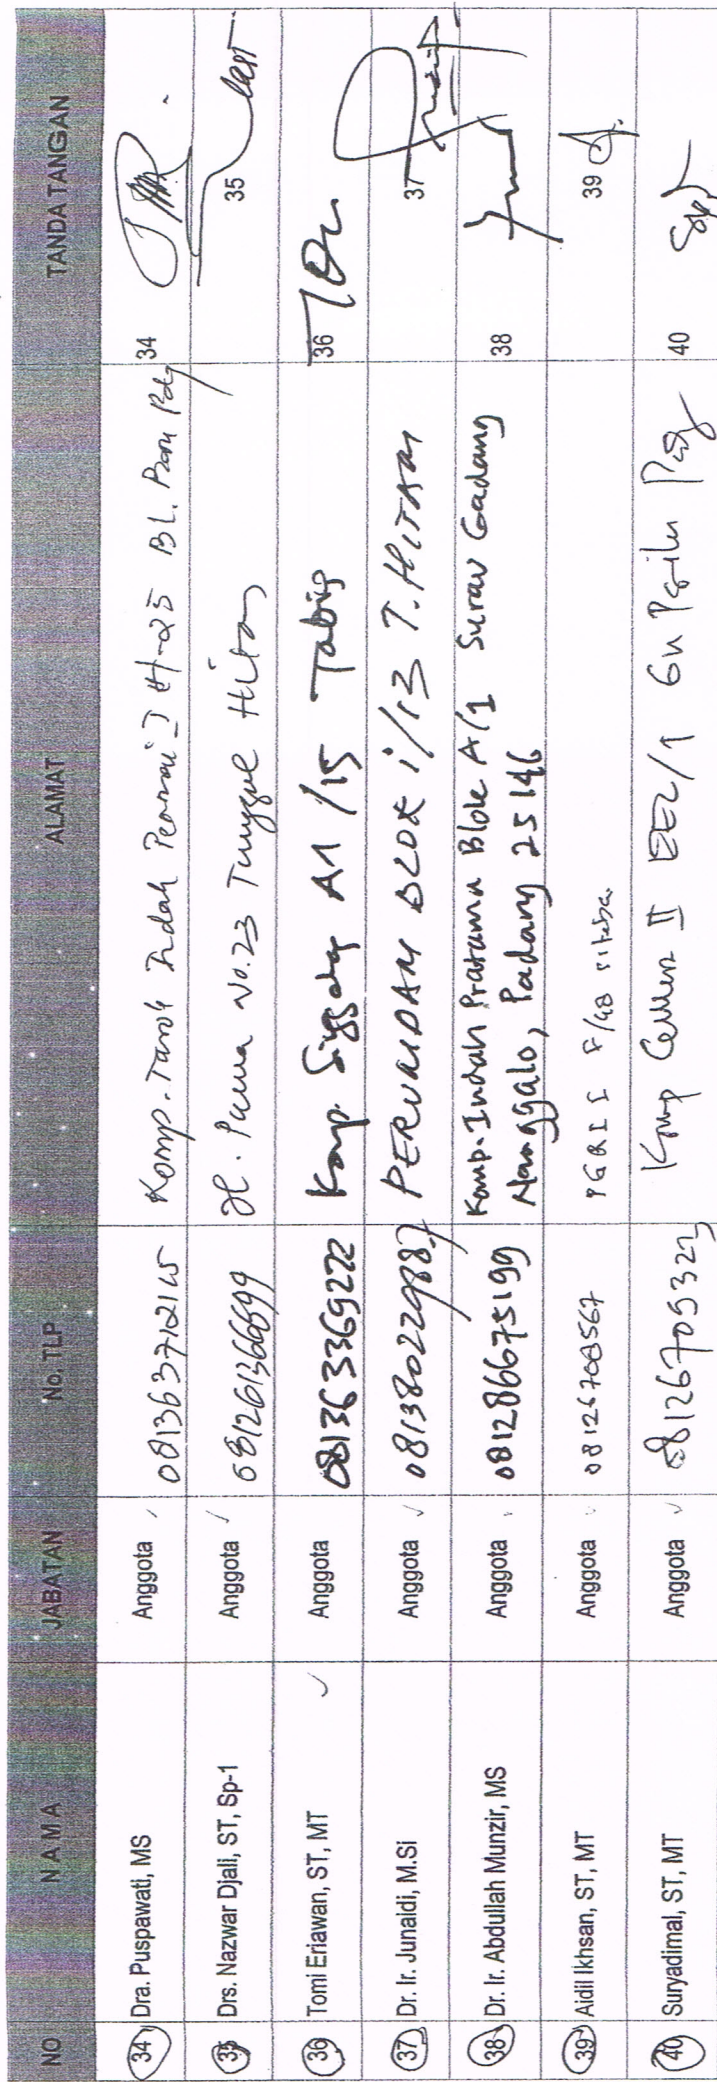 NO NAMA JABATAN No. TLP ALAMAT TANDA TANGAN
34 Dra. Puspawati, MS Anggota 081363712165 Komp. Taroh Indah Permai I H-25 BL. 34
35 Drs. Nazwar Djali, ST, Sp-1 Anggota 081261366699 Jl. No. 23 Tunggul Hitam 35
36 Tomi Eriawan, ST, MT Anggota 081363369272 Komp. Singgalang A1/15 Tabing 36
37 Dr. Ir. Junaidi, M.Si Anggota 081380229887 PERUMDAM BLOK i/13 T. HITAM 37
38 Dr. Ir. Abdullah Munzir, MS Anggota 081286675199 Komp. Indah Pratama Blok A/1 Surau Gadang 38
Nanggalo, Padang 25146
39 Aidil Ikhsan, ST, MT Anggota 08126708567 PGRI I F/48 siteba 39
40 Suryadimal, ST, MT Anggota 08126705323 Komp II EE2/1 Gn Pdg 40